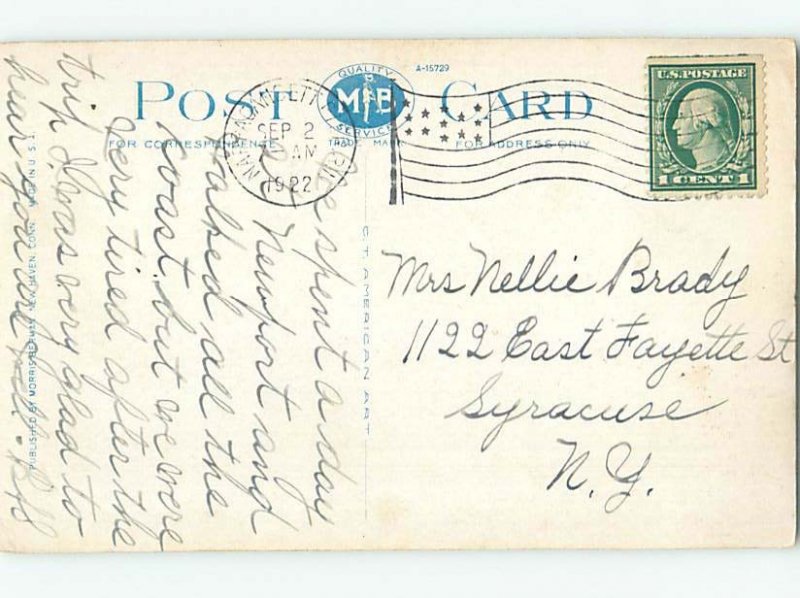 A-15729
QUALITY
M B
SERVICE
TRADE MARK
POST CARD
FOR CORRESPONDENCE
FOR ADDRESS ONLY
NARRAGANSETT PIER
SEP 2
AM
1922
U.S. POSTAGE
1 CENT 1
We spent a day
Newport and
walked all the
coast, but we were
very tired after the
trip. I was very glad to
hear you are well.
Mrs Nellie Brady
1122 East Fayette St
Syracuse
N.Y.
C.T. AMERICAN ART
PUBLISHED BY MORRIS BERMAN, NEW HAVEN, CONN. MADE IN U.S.A.